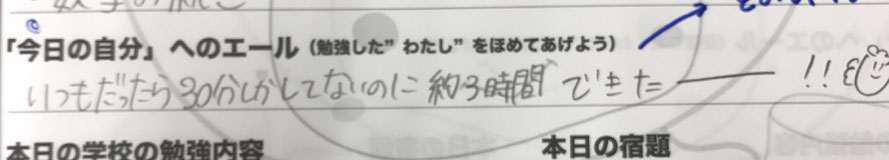 「今日の自分」へのエール（勉強した”わたし”をほめてあげよう）
いつもだったら30分しかしてないのに 約3時間 できたーーー!!
本日の学校の勉強内容
本日の宿題